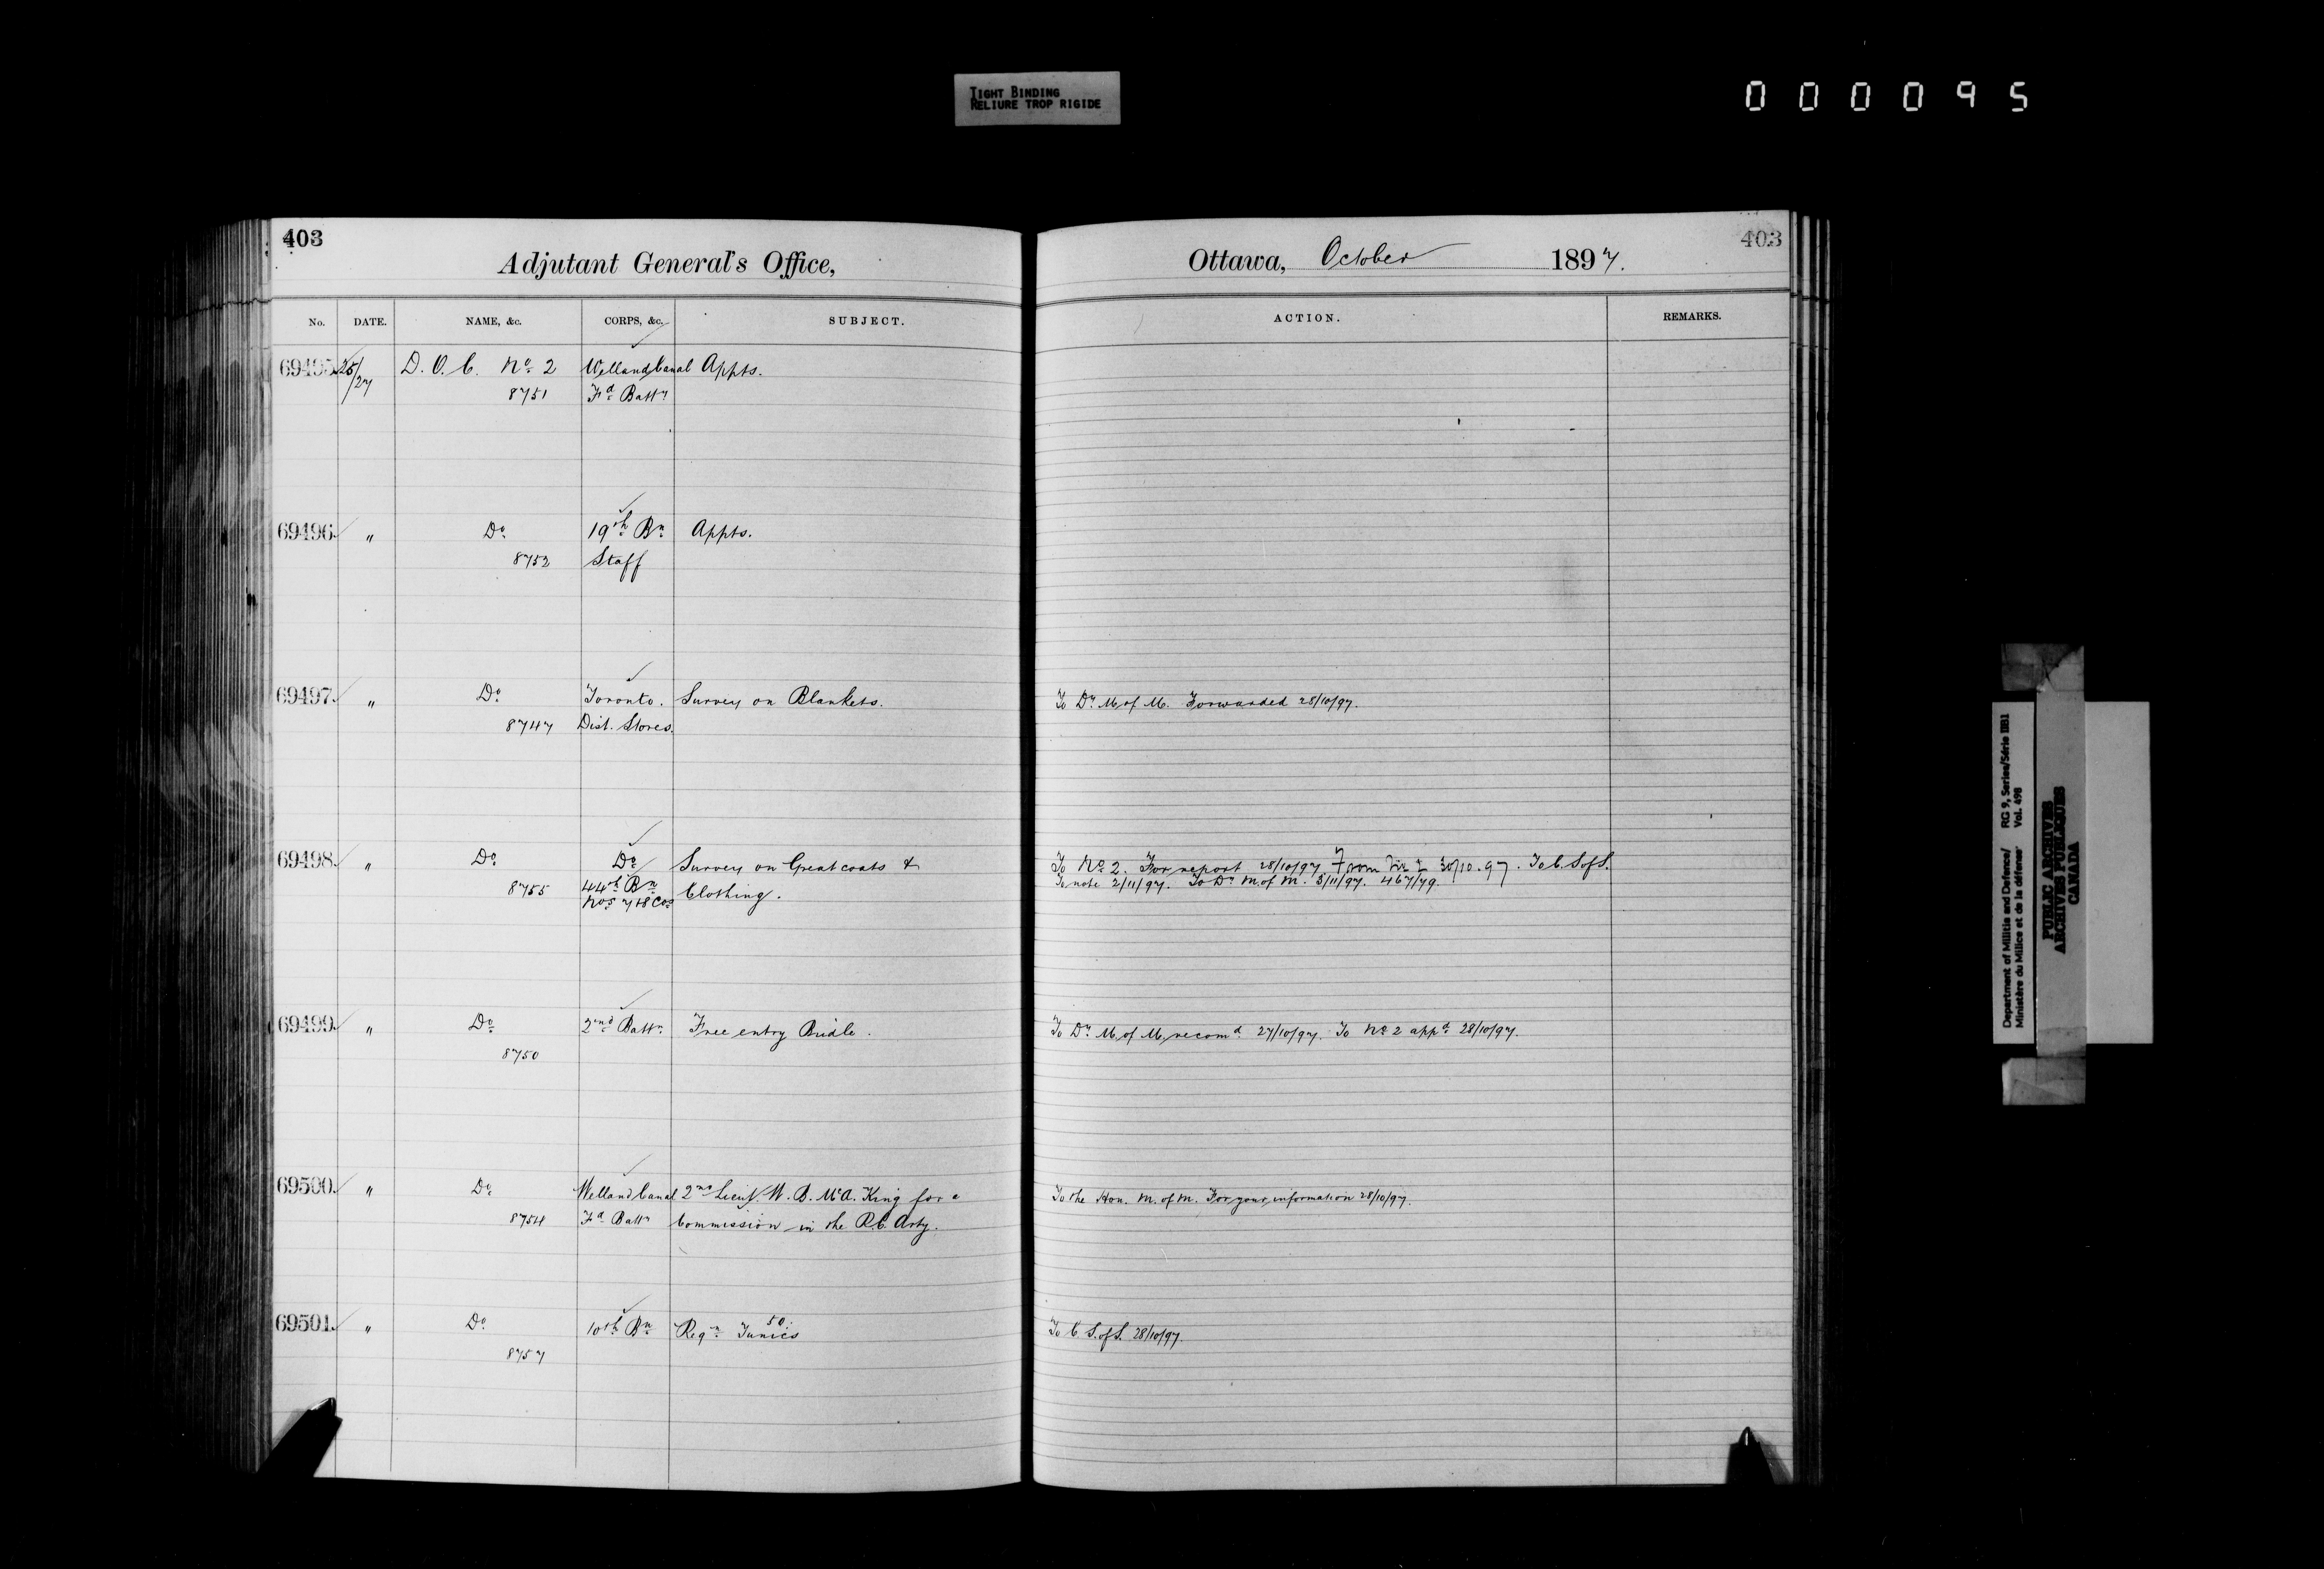 TIGHT BINDING
RELIURE TROP RIGIDE
000095
403
Adjutant General's Office,
No. DATE. NAME, &c. CORPS, &c. SUBJECT.
69495 25/27 D.O.C. No. 2 Welland Canal Appts.
8751 Fd. Batty
69496 " Do. 19th Bn. Appts.
8752 Staff
69497 " Do. Toronto. Survey on Blankets.
8747 Dist. Stores.
69498 " Do. Do. Survey on Great coats &
8755 44th Bn. Clothing.
Nos 7 & 8 Cos
69499 " Do. 2nd Batty. Free entry Bridle.
8750
69500 " Do. Welland Canal 2nd Lieut. W. B. McA. King for a
8754 Fd. Batty Commission in the R.C. Arty.
69501 " Do. 10th Bn. Reqn. 50 Tunics
8757
403
Ottawa, October 1897.
ACTION. REMARKS.
To Dy. M. of M. Forwarded 28/10/97.
To No. 2. For report 28/10/97. From No 2 30/10.97. To C.S. of S.
To note 2/11/97. To Dy M. of M. 3/11/97. 467/79.
To Dy. M. of M. recomd. 27/10/97. To No. 2 appd. 28/10/97.
To the Hon. M. of M. For your information 28/10/97.
To C.S. of S. 28/10/97.
Department of Militia and Defence/ RG 9, Series/Série IIB1
Ministère du Milice et de la défense Vol. 498
PUBLIC ARCHIVES
ARCHIVES PUBLIQUES
CANADA